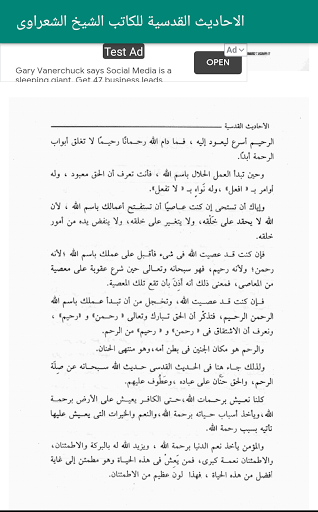 الاحاديث القدسية للكاتب الشيخ الشعراوى
Test Ad
Ad
OPEN
Gary Vanerchuck says Social Media is a
sleeping giant. Get 47 business leads
الأحاديث القدسية
الرحيم أسرع ليعود إليه ، فما دام الله رحمانًا رحيمًا لا تغلق أبواب
الرحمة أبدًا.
وحين تبدأ العمل الحلال باسم الله ، فأنت تعرف أن الحق معبود ، وله
أوامر بـ « افعل» ، وله نَواهٍ بـ « لا تفعل».
وإياك أن تستحى إن كنت عاصيًا أن تستفتح أعمالك باسم الله ، لأن
الله لا يحقد على خَلْقه، ولا يتغير على خلقه، ولا ينفض يده من أمور
خلقه.
فإن كنت قد عصيت الله فى شىء فأقبل على عملك باسم الله لأنه
رحمن؛ ولأنه رحيم، فهو سبحانه وتعالى حين شرع عقوبة على معصية
من المعاصى، فمعنى ذلك أنه أذِنَ بأن تقع تلك المعصية.
فإن كنت قد عصيت الله، وتخجل من أن تبدأ عملك باسم الله
الرحمن الرحيم، فتذكَّر أن الحق تبارك وتعالى « رحمن» و «رحيم» ،
ونعرف أن الاشتقاق فى « رحمن» و « رحيم» من الرحم.
والرحم هو مكان الجنين فى بطن أمه،وهو منتهى الحنان.
ولذلك جاء هنا فى الحديث القدسى حديث الله سبحانه عن صِلَة
الرحم، والحق حَنَّان على عباده ،وعَطُوف عليهم.
كلنا نعيش برحمات الله،حتى الكافر يعيش على الأرض برحمة
الله،ويأخذ أسباب حياته برحمة الله،والنعم والخيرات التى يعيش عليها
تأتيه بسبب رحمة الله.
والمؤمن يأخذ نعم الدنيا برحمة الله ، ويزيد الله له بالبركة والاطمئنان،
والاطمئنان نعمة كبرى، فمن يَعِشْ فى هذه الحياة وهو مطمئن إلى غاية
أفضل من هذه الحياة ، فهذا لون عظيم من الاطمئنان.